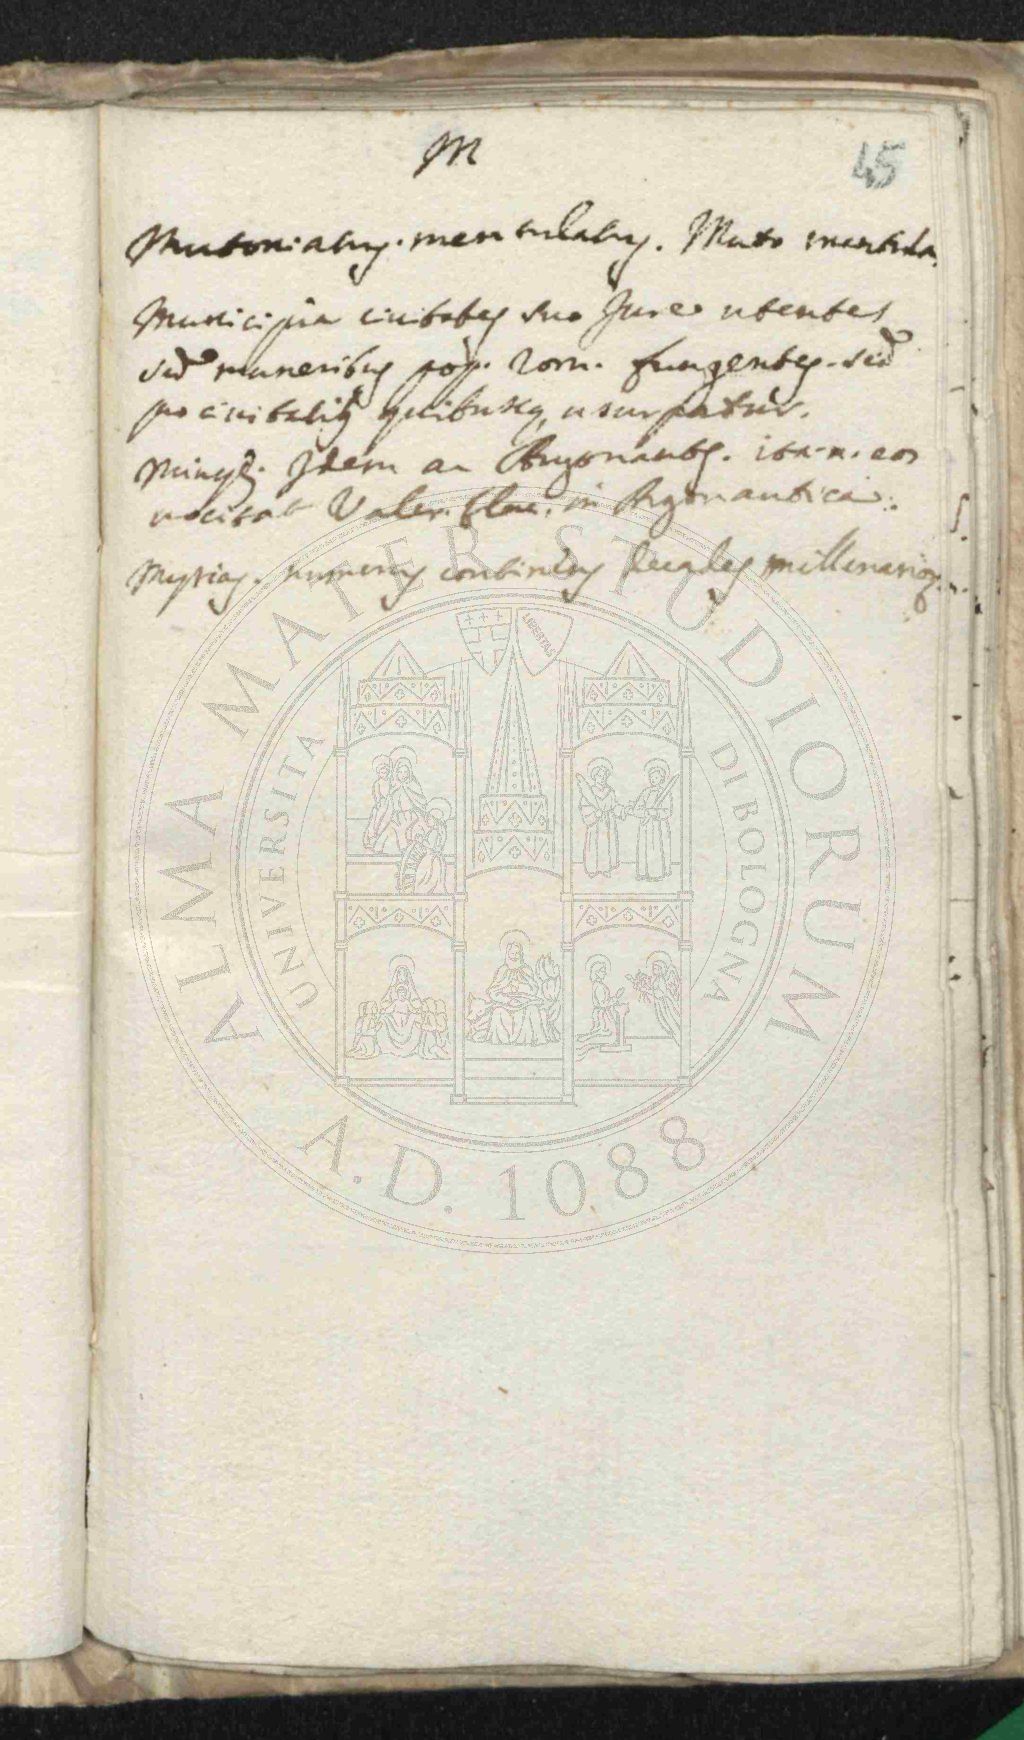 M
45
Mutoniatus. mentulatus. Muto mentula.
Municipia civitates suo Jure utentes
sed muneribus pop. rom. fungentes. sed
pro civitatib quibusq usurpatur.
Minyę. Jdem ac Argonautę. ita. n. eos
vocitat Valer. flac. in Argonautica.
Myrias. numerus continens decades
ALMA MATER STUDIORUM
UNIVERSITA DI BOLOGNA
LIBERTAS
A.D. 1088